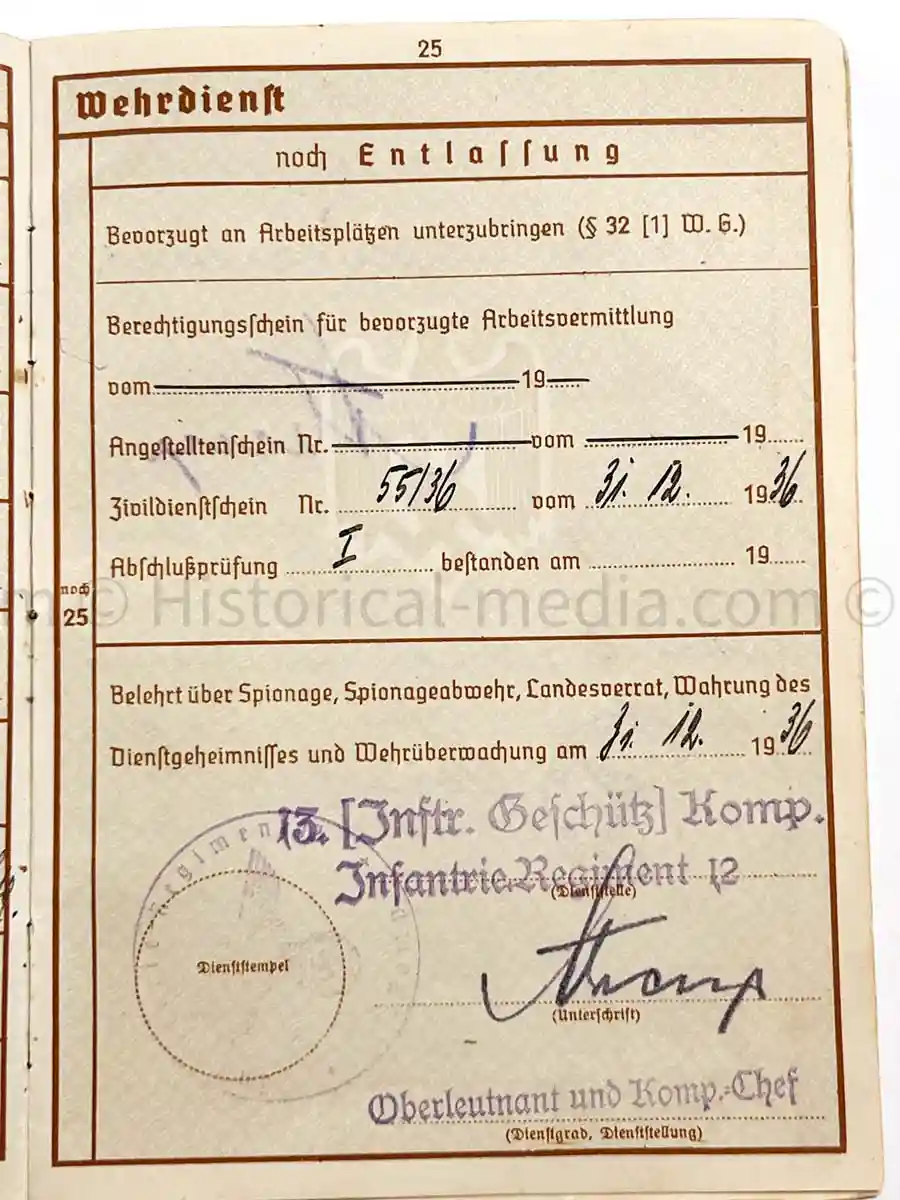 25
Wehrdienst
noch Entlassung
Bevorzugt an Arbeitsplätzen unterzubringen (§ 32 [1] W. G.)
Berechtigungsschein für bevorzugte Arbeitsvermittlung
vom 19
Angestelltenschein Nr. vom 19
Zivildienstschein Nr. 55/36 vom 31. 12. 1936
Abschlußprüfung I bestanden am 19
noch
25
© Historical-media.com ©
Belehrt über Spionage, Spionageabwehr, Landesverrat, Wahrung des
Dienstgeheimnisses und Wehrüberwachung am 31. 12. 1936
13. [Inftr. Geschütz] Komp.
Infantrie-Regiment 12
(Dienststelle)
Dienststempel
(Unterschrift)
Oberleutnant und Komp.-Chef
(Dienstgrad, Dienststellung)